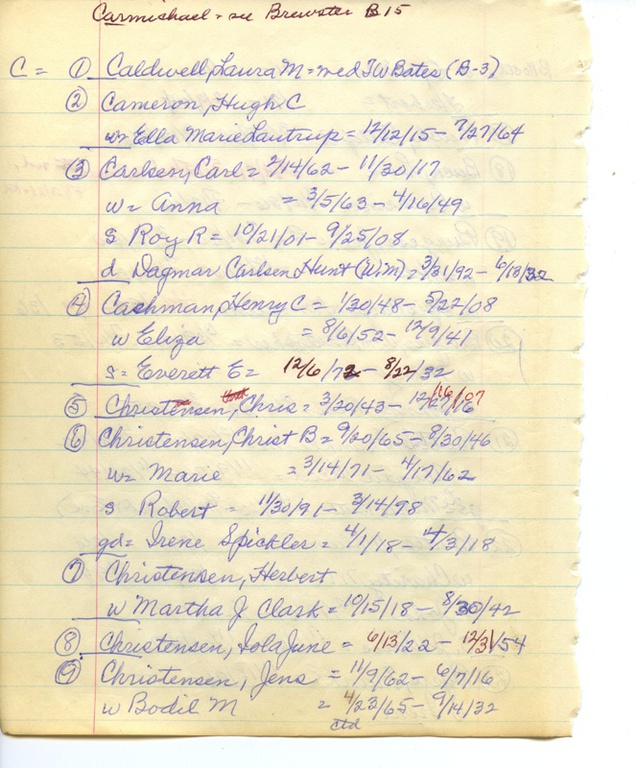 Carmichael - see Brewster B15
C = ① Caldwell, Laura M = wed T W Bates (B-3)
② Cameron, Hugh C
w = Ella Marie Lautrup = 12/12/15 - 7/27/64
③ Carlsen, Carl = 2/14/62 - 11/20/17
w = Anna = 3/5/63 - 4/16/49
s Roy R = 10/21/01 - 9/25/08
d Dagmar Carlsen Hunt (Wm) = 3/31/92 - 6/13/32
④ Cashman, Henry C = 1/30/48 - 5/22/08
w Eliza = 8/6/52 - 12/9/41
s = Everett E = 12/6/72 - 8/22/32
⑤ Christensen, Chris = 3/20/43 - 12/16/07
⑥ Christensen, Christ B = 9/20/65 - 8/30/46
w = Marie = 3/14/71 - 4/17/62
s Robert = 11/30/91 - 3/14/98
gd = Irene Spickler = 4/1/18 - 4/3/18
⑦ Christensen, Herbert
w Martha J Clark = 10/15/18 - 8/30/42
⑧ Christensen, Iola June = 6/13/22 - 12/31/54
⑨ Christensen, Jens = 11/9/62 - 6/7/16
w Bodil M = 4/23/65 - 9/14/32
ctd